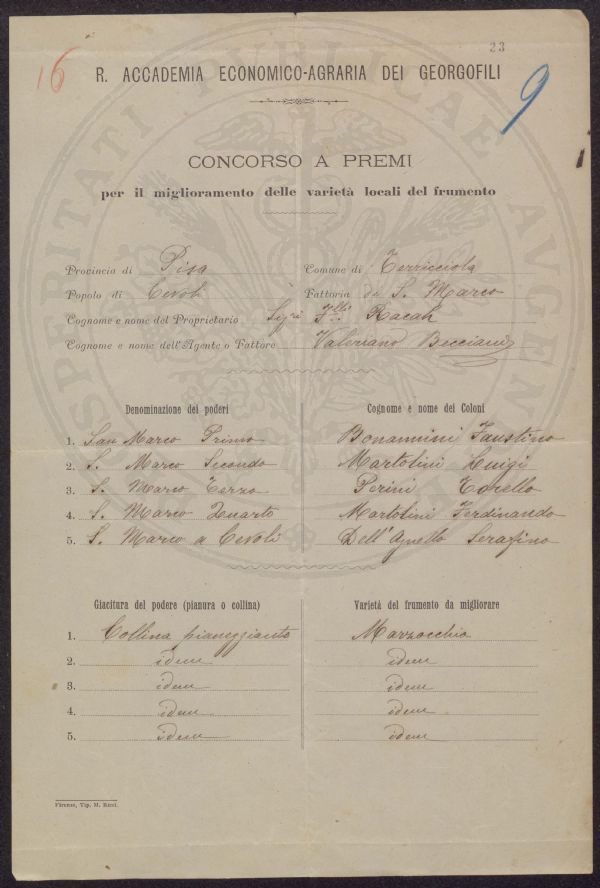 16
23
9
R. ACCADEMIA ECONOMICO-AGRARIA DEI GEORGOFILI
CONCORSO A PREMI
per il miglioramento delle varietà locali del frumento
Provincia di Pisa Comune di Terricciola
Popolo di Cevoli Fattoria di S. Marco
Cognome e nome del Proprietario Sigri Flli Racah
Cognome e nome dell'Agente o Fattore Valeriano Becciani
Denominazione dei poderi Cognome e nome dei Coloni
1. San Marco Primo Bonannini Faustino
2. S. Marco Secondo Martolini Luigi
3. S. Marco Terzo Perini Torello
4. S. Marco Quarto Martolini Ferdinando
5. S. Marco a Cevoli Dell'Agnello Serafino
Giacitura del podere (pianura o collina) Varietà del frumento da migliorare
1. Collina pianeggiante Marzocchio
2. idem idem
3. idem idem
4. idem idem
5. idem idem
Firenze, Tip. M. Ricci.
PROSPERITATI PUBLICAE AUGENDAE